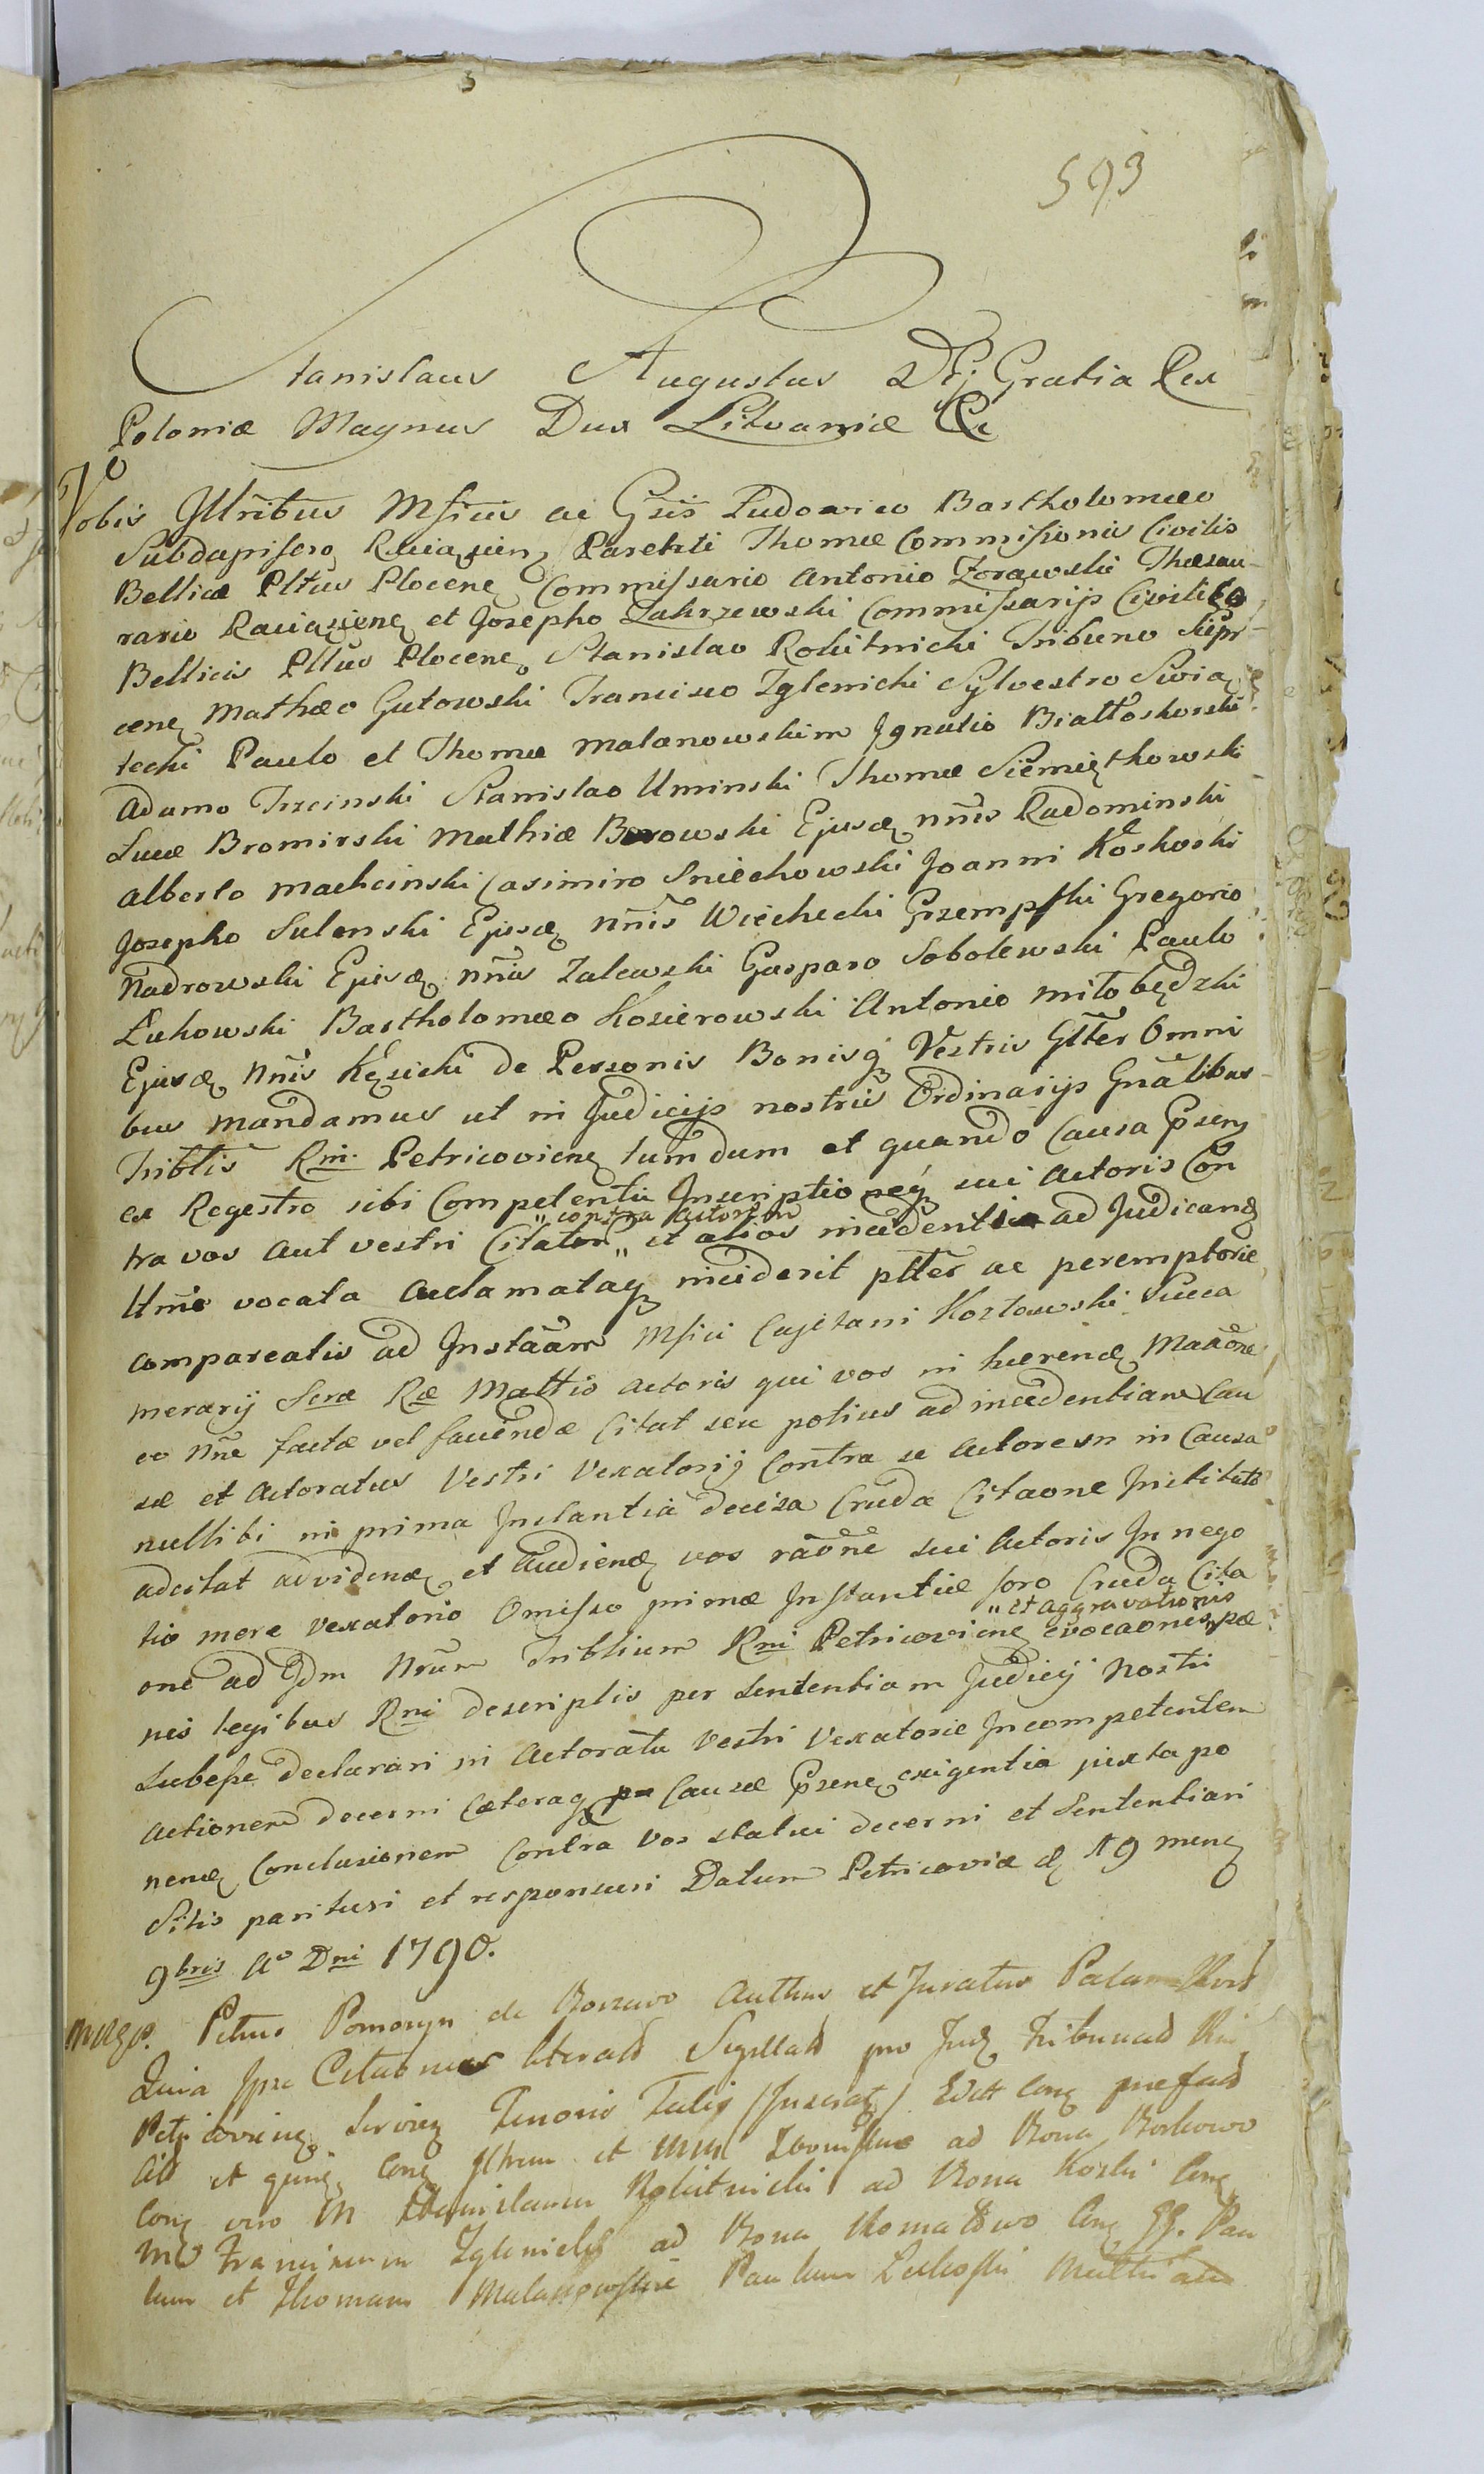 593
Stanislaus Augustus Dei Gratia Rex
Poloniæ Magnus Dux Litvaniæ &c
Vobis Illribus Mficis ac Gsis Ludovico Bartholomæo
Subdapifero Raciązien Parenti Thomæ Commissionis Civilis
Bellicæ Pltus Plocen Commissario Antonio Zorawski Thesau-
rario Raciązien et Josepho Zakrzewski Commissarijs Civilibo
Bellicis Pltus Plocen Stanislao Rokitnicki Tribuno Sierp-
cen Mathæo Gutowski Francisco Zglenicki Sylvestro Swia
tecki Paulo et Thomæ Malanowskim Ignatio Białłoskorski
Adamo Trzcinski Stanislao Uminski Thomæ Siemiątkowski
Lucæ Bromirski Mathiæ Borowski Ejusd nnis Radominski
Alberto Machcinski Casimiro Sniechowski Joanni Koskoski
Josepho Sulenski Ejusd nnis Wiechecki Grzempski Gregorio
Nadrowski Ejusd nnis Zalewski Gasparo Sobolewski Paulo
Łukowski Bartholomæo Kosierowski Antonio Miłobędzki
Ejusd nnis Kęsicki de Personis Bonisq Vestris Gltter Omni
bus mandamus ut in Judicijs nostris Ordinarijs Gnalibus
Triblis Rni Petricovien tum dum et quando Causa Psens
ex Regestro sibi Competenti Inscriptioneq sui Actoris Con
tra vos aut vestri Citatom „contra actorem„ et alios incidentia ad Judicand
Ume vocata Acclamataq inciderit pltter ac peremptorie
compareatis ad Instaam Mfici Cajetani Kozłowski Succa
merarij Scræ Ræ Mattis Actoris qui vos in hærend Maaone
eo nne factæ vel faciendæ Citat seu potius ad incidentiam Cau
sæ et Actoratus Vestri Vexatorij Contra se Actorem in Causa
nullibi in prima Instantia decisa Cruda Citaone Instituto
adcitat ad vidend et Audiend vos raone sui Actoris In nego
tio mere vexatorio Omisso primæ Instantiæ foro Cruda Cita
one ad Jdm Nrum Triblium Rni Petricovien evocaonis „et aggravationis pæ
nis legibus Rni descriptis per Sententiam Judicij Nostri
Subesse declarari in Actoratu Vestri Vexatorie Incompetentem
Actionem decerni Cæteraq Causæ Psens exigentia juxta po
nend Conclusionem Contra vos statui decerni et Sententiari
Sitis parituri et responsuri Datum Petricoviæ d 19 mens
9bris Ao Dni 1790.
Petrus Pomoryn de Authus et Juratus Palam
Quia Ipse Citaones literales Sigillat pro Jud Tribunal Rni
Petricovien Servien Tenoris Talis (Inserat)
et Con Illrem et ad Bona Borkowo
Con vero M Stanislaum Rokitnicki ad Bona Koski Con
M Franciscum Zglenicki ad Bona Con GG. Pau
lum et Thomam Malanowskie Paulum Łukoski